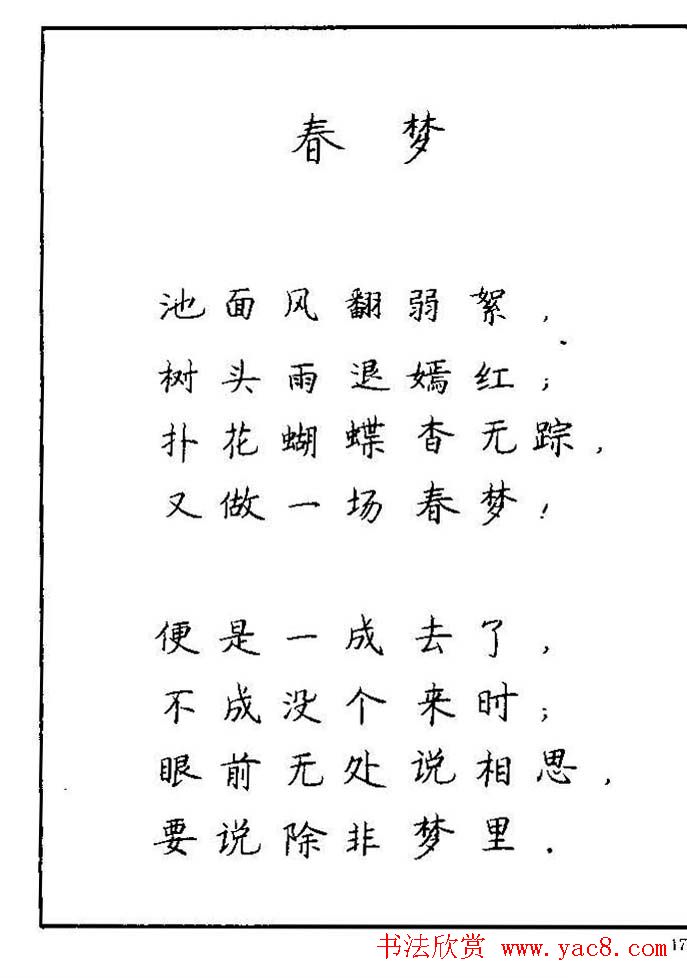 春 梦
池面风翻弱絮，
树头雨退嫣红；
扑花蝴蝶杳无踪，
又做一场春梦！
便是一成去了，
不成没个来时；
眼前无处说相思，
要说除非梦里．
17
书法欣赏 www.yac8.com